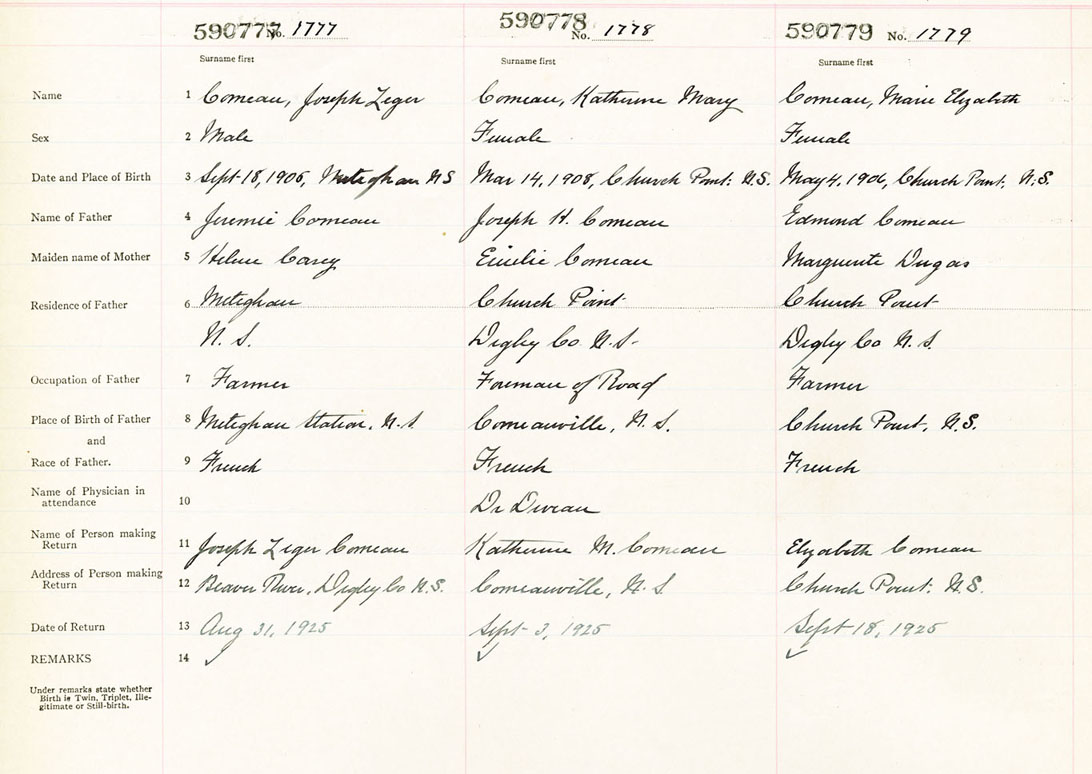 590777 No. 1777 590778 No. 1778 590779 No. 1779
Surname first Surname first Surname first
Name 1 Comeau, Joseph Leger Comeau, Katherine Mary Comeau, Marie Elizabeth
Sex 2 Male Female Female
Date and Place of Birth 3 Sept 18, 1906, Meteghan N S Mar 14, 1908, Church Point, N.S. May 4, 1906, Church Point, N.S.
Name of Father 4 Jeremie Comeau Joseph H. Comeau Edmond Comeau
Maiden name of Mother 5 Helene Carey Emilie Comeau Marguerite Dugas
Residence of Father 6 Meteghan Church Point Church Point
N. S. Digby Co N.S. Digby Co N. S.
Occupation of Father 7 Farmer Foreman of Road Farmer
Place of Birth of Father 8 Meteghan Station, N.S. Comeauville, N. S. Church Point, N.S.
and
Race of Father. 9 French French French
Name of Physician in
attendance 10 Dr
Name of Person making
Return 11 Joseph Leger Comeau Katherine M. Comeau Elizabeth Comeau
Address of Person making
Return 12 Beaver River, Digby Co N.S. Comeauville, N. S Church Point, N.S.
Date of Return 13 Aug 31, 1925 Sept 3, 1925 Sept 18, 1925
REMARKS 14
Under remarks state whether
Birth is Twin, Triplet, Ille-
gitimate or Still-birth.